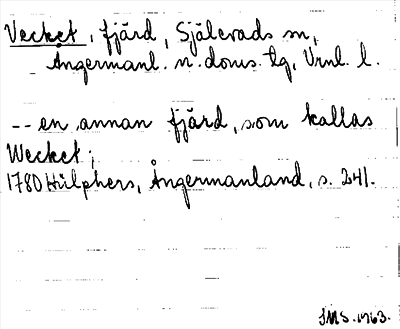 Vecket, fjärd, Själevads sn,
Ångermanl. n. doms. tg, Vrnl. l.
-- en annan fjärd, som kallas
Wecket;
1780 Hülphers, Ångermanland, s. 241.
JMS. 1963.